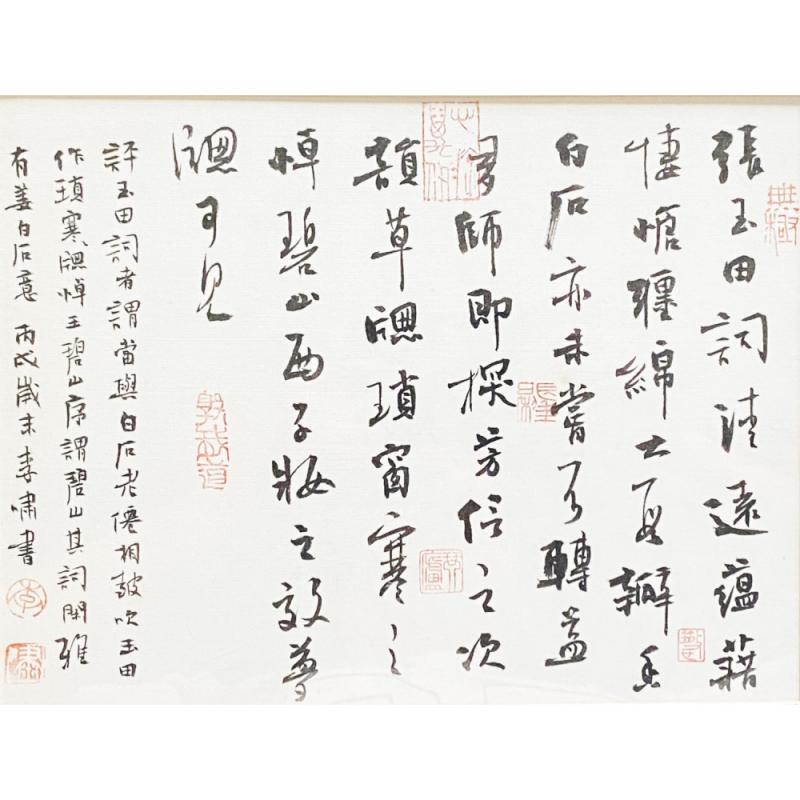 張玉田詞清遠蘊藉
悽愴纏綿大段瓣香
白石亦未嘗不轉益
多師即探芳信之次
韻草牕瑣窗寒之
悼碧山西子妝之效夢
牕可見
評玉田詞者謂當與白石老僊相鼓吹玉田
作瑣寒牕悼王碧山序謂碧山其詞閑雅
有姜白石意 丙戌歲末李嘯書